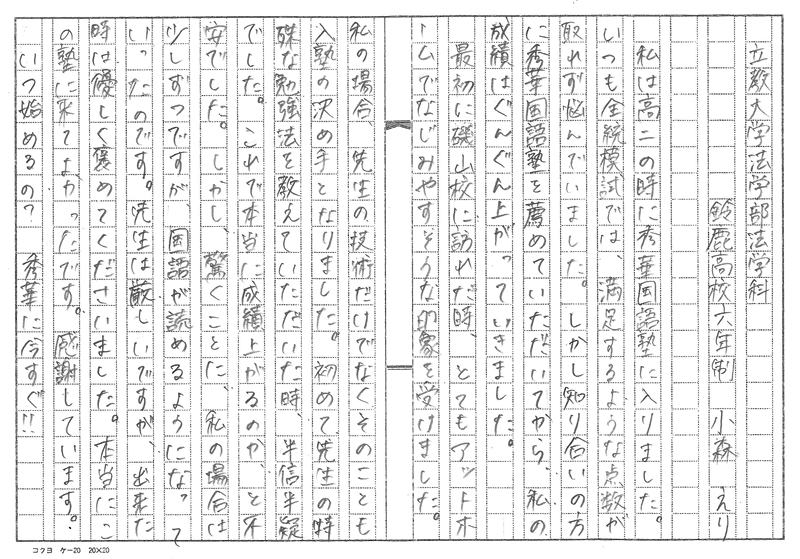 立教大学法学部法学科
鈴鹿高校六年制　小森　えり
私は高二の時に秀華国語塾に入りました。
いつも全統模試では、満足するような点数が
取れず悩んでいました。しかし知り合いの方
に秀華国語塾を薦めていただいてから、私の
成績はぐんぐん上がっていきました。
最初に磯山校に訪れた時、とてもアットホ
ームでなじみやすそうな印象を受けました。
私の場合、先生の技術だけでなくそのことも
入塾の決め手となりました。初めて先生の特
殊な勉強法を教えていただいた時、半信半疑
でした。これで本当に成績上がるのか、と不
安でした。しかし、驚くことに、私の場合は
少しずつですが、国語が読めるようになって
いったのです。先生は厳しいですが、出来た
時は優しく褒めてくださいました。本当にこ
の塾に来てよかったです。感謝しています。
いつ始めるの？　秀華に今すぐ!!
コクヨ　ケー20　20×20